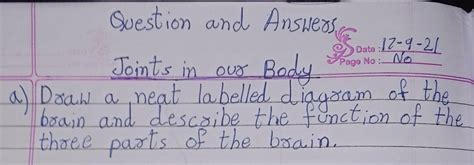 Question and Answers
Date : 12-9-21
Page No : No
Joints in our Body
a) Draw a neat labelled diagram of the
brain and describe the function of the
three parts of the brain.